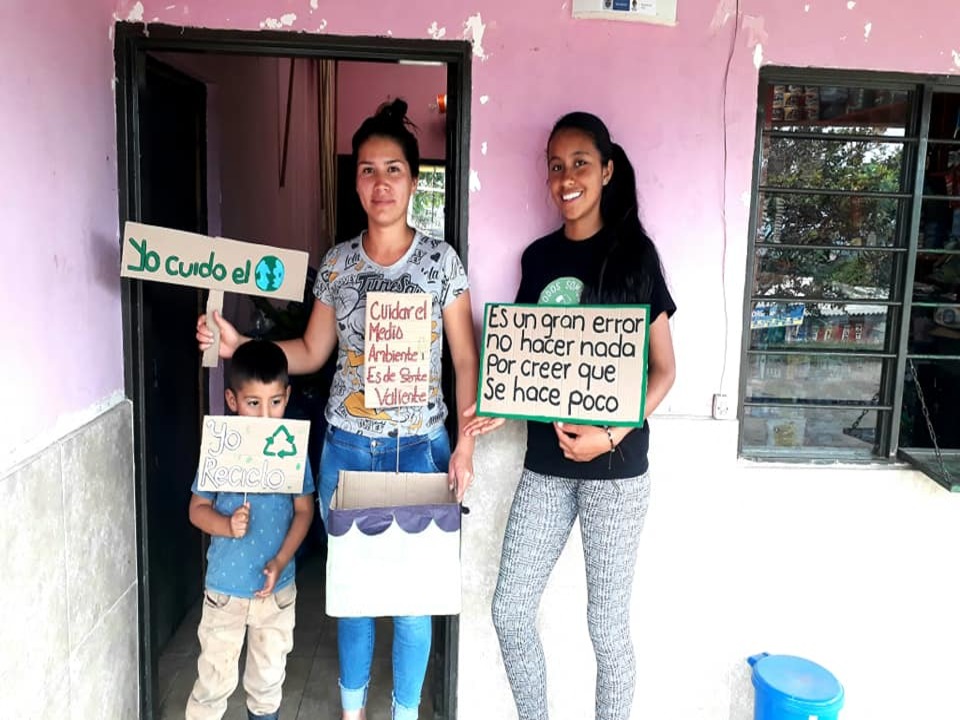 Yo cuido el
Cuidar el
Medio
Ambiente
Es de Gente
Valiente
Es un gran error
no hacer nada
Por creer que
Se hace poco
Yo
Reciclo